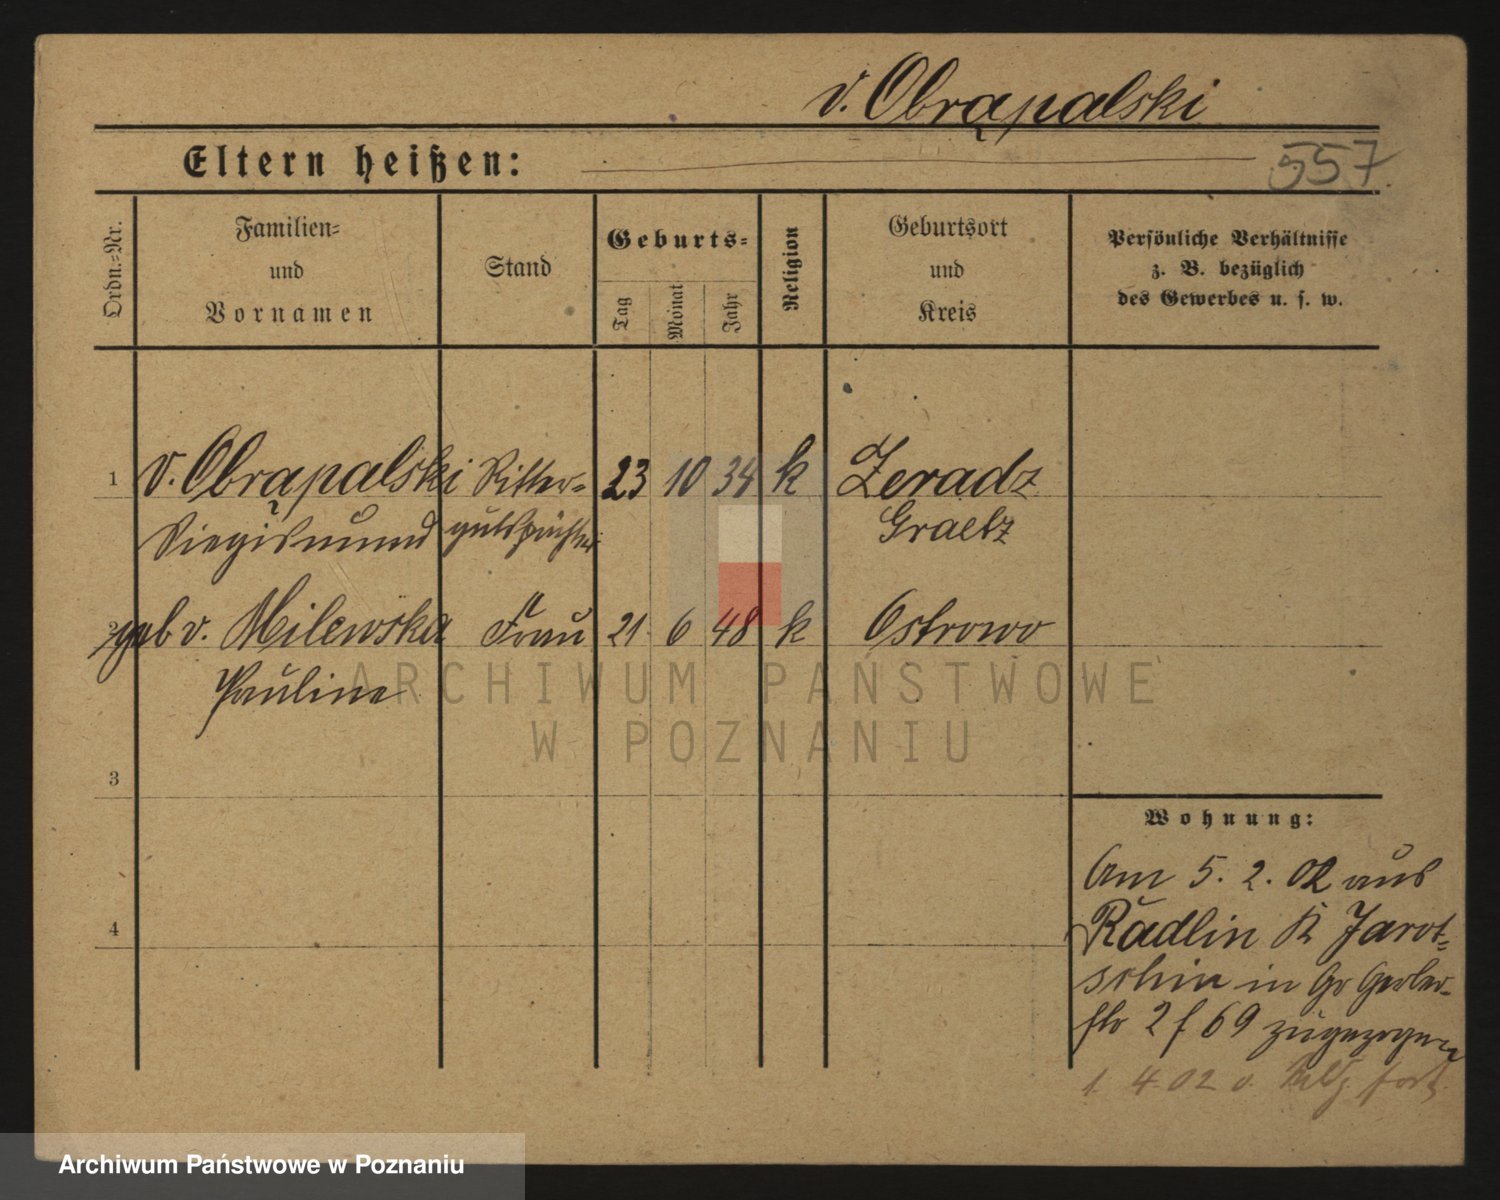 v. Obrąpalski
Eltern heißen:
557
Ordn.-Nr.
Familien-
und
Vornamen
Stand
Geburts-
Tag
Monat
Jahr
Religion
Geburtsort
und
Kreis
Persönliche Verhältnisse
z. B. bezüglich
des Gewerbes u. s. w.
1 v. Obrąpalski Ritter- 23 10 34 k Zeradz
Siegismund gutspächter Graetz
2 geb v. Milewska Frau 21 6 48 k Ostrowo
Pauline
ARCHIWUM PAŃSTWOWE
W POZNANIU
3
4
Wohnung:
Am 5. 2. 02 aus
Radlin K Jarot-
schin in Gr Gerber-
str 2 f 69 zugezogen
1. 4. 02 v. fort
Archiwum Państwowe w Poznaniu